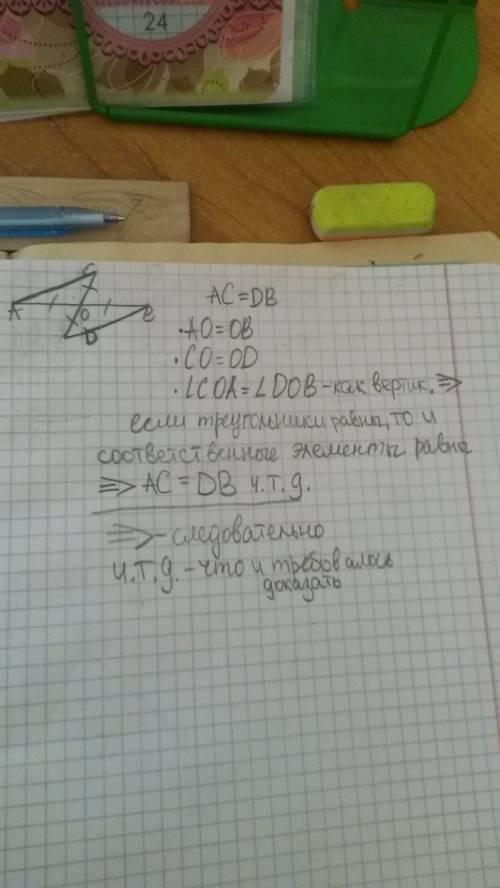 24
C
A O B
D
AC=DB
·AO=OB
·CO=OD
·∠COA=∠DOB-как вертик. =>
если треугольники равны, то и
соответственные элементы равны
=> AC=DB ч.т.д.
=>-следовательно
ч.т.д.-что и требовалось
доказать